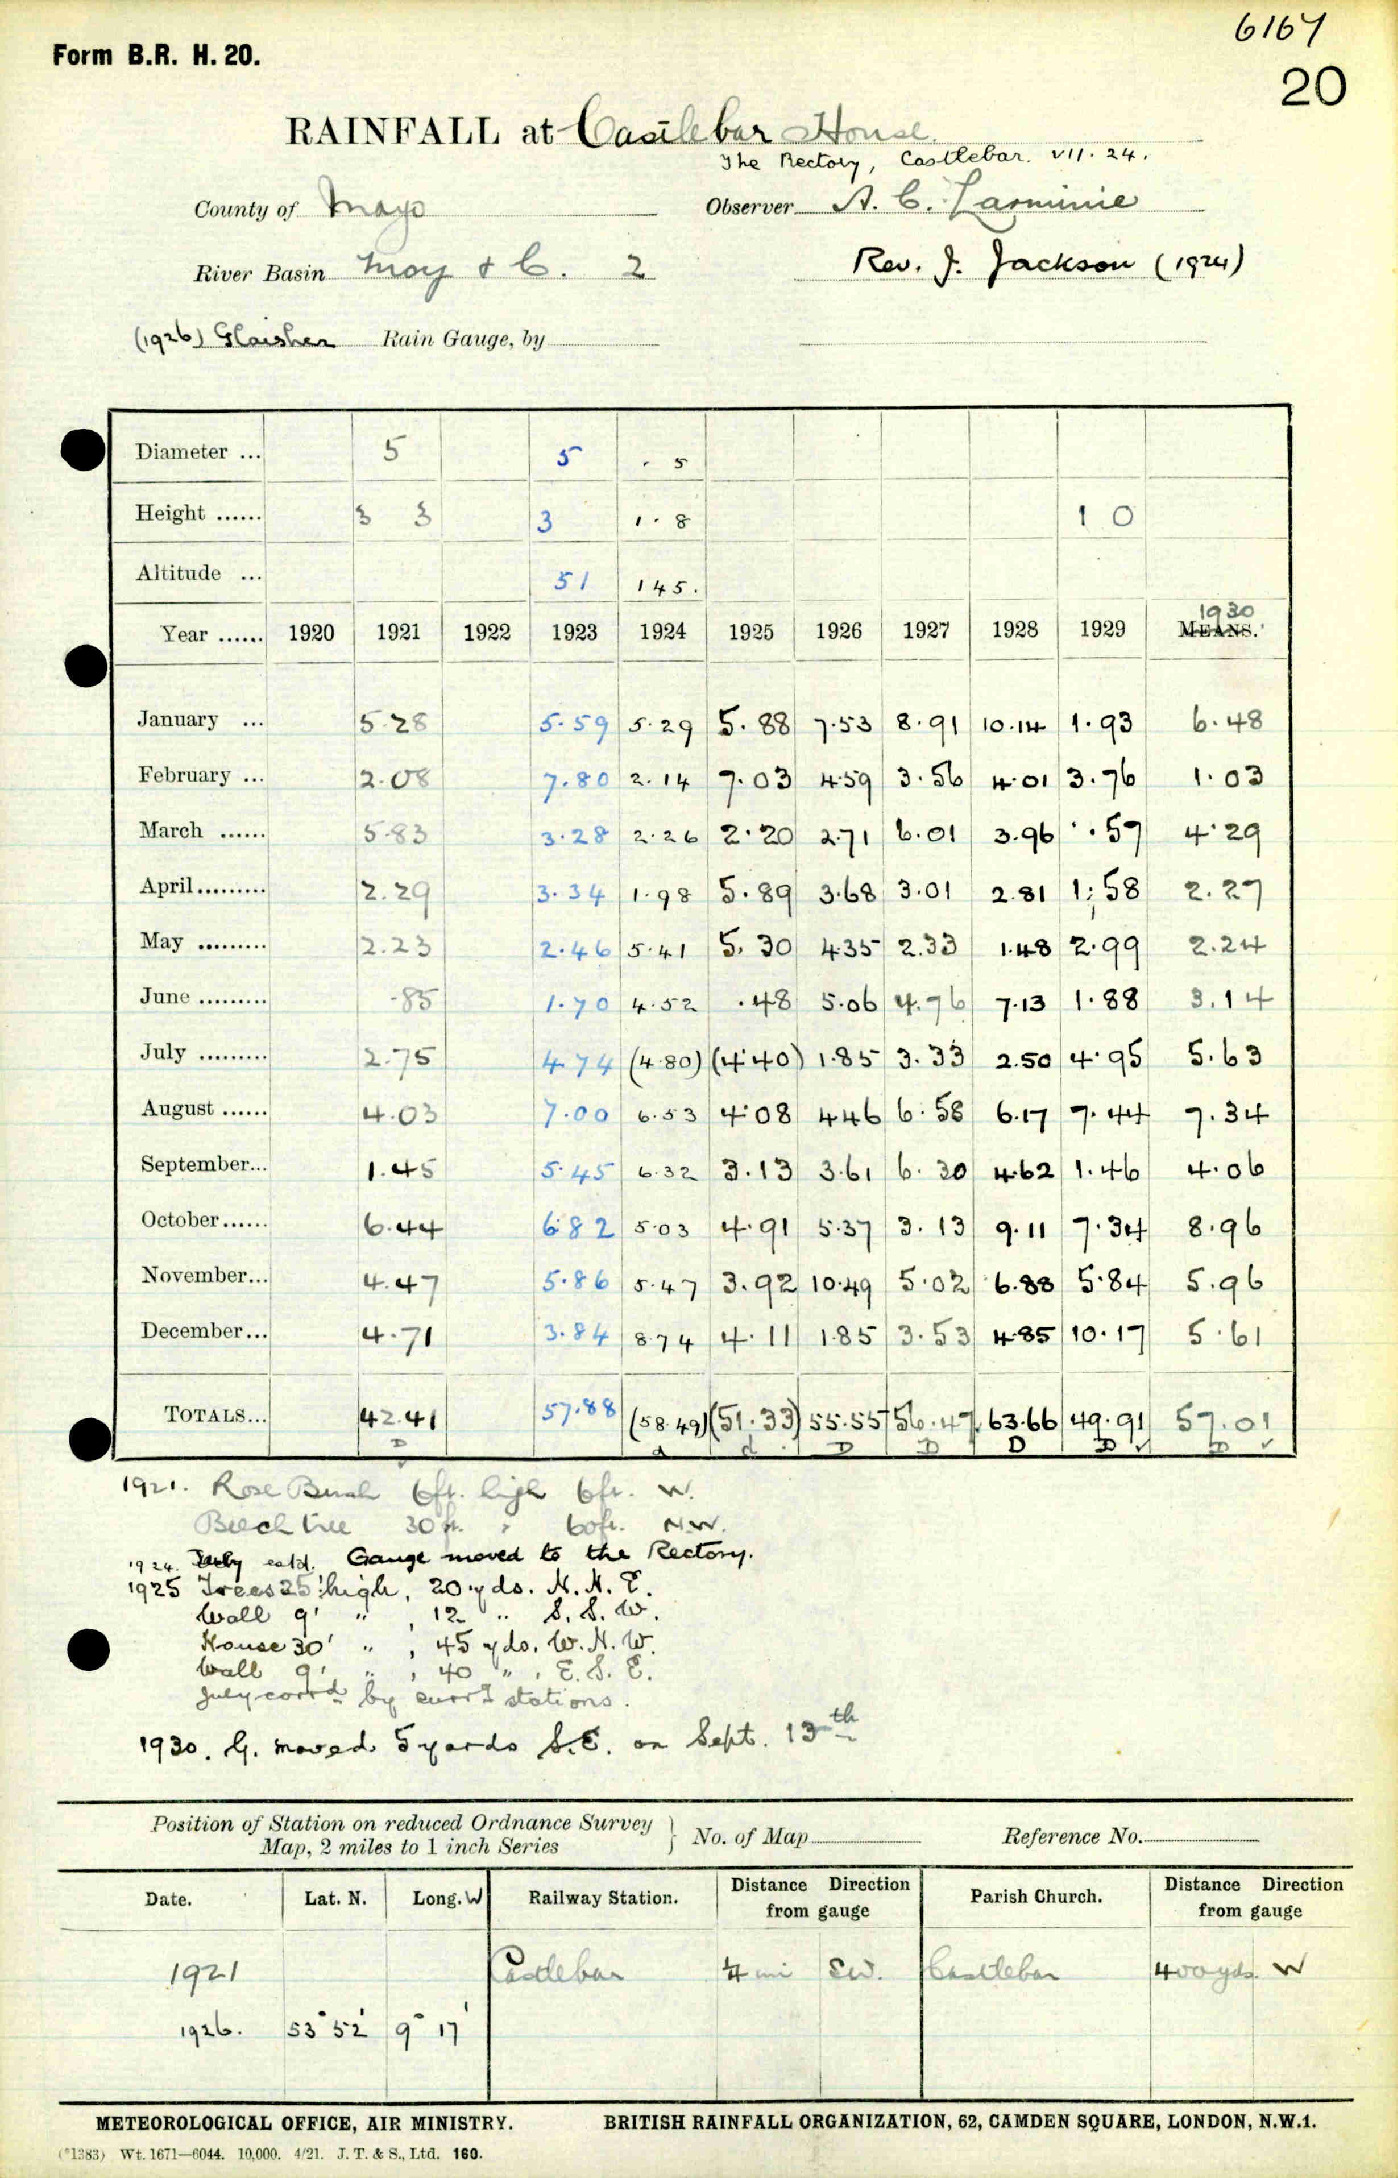 6167
Form B.R. H. 20.
20
RAINFALL at Castlebar House.
The Rectory, Castlebar. VII. 24.
County of Mayo Observer A. C. Larminie
River Basin Moy & C. 2 Rev. J. Jackson (1924)
(1926) Glaisher Rain Gauge, by
Diameter ... 5 5 5
Height ...... 3 3 3 1 . 8 1 0
Altitude ... 51 145.
1930
Year ...... 1920 1921 1922 1923 1924 1925 1926 1927 1928 1929 MEANS.
January ... 5.28 5.59 5.29 5.88 7.53 8.91 10.14 1.93 6.48
February ... 2.08 7.80 2.14 7.03 4.59 3.56 4.01 3.76 1.03
March ...... 5.83 3.28 2.26 2.20 2.71 6.01 3.96 .57 4.29
April......... 2.29 3.34 1.98 5.89 3.68 3.01 2.81 1.58 2.27
May ......... 2.23 2.46 5.41 5.30 4.35 2.33 1.48 2.99 2.24
June ......... .85 1.70 4.52 .48 5.06 4.76 7.13 1.88 3.14
July ......... 2.75 4.74 (4.80) (4.40) 1.85 3.33 2.50 4.95 5.63
August ...... 4.03 7.00 6.53 4.08 4.46 6.58 6.17 7.44 7.34
September... 1.45 5.45 6.32 3.13 3.61 6.30 4.62 1.46 4.06
October...... 6.44 6.82 5.03 4.91 5.37 3.13 9.11 7.34 8.96
November... 4.47 5.86 5.47 3.92 10.49 5.02 6.88 5.84 5.96
December... 4.71 3.84 8.74 4.11 1.85 3.53 4.85 10.17 5.61
TOTALS... 42.41 57.88 (58.49) (51.33) 55.55 56.47 63.66 49.91 57.01
D d d D D D D ✓ D ✓
1921. Rose Bush 6ft. high 6ft. W.
Beech tree 30ft. " 60ft. N.W.
1924. July estd. Gauge moved to the Rectory.
1925 Trees 25' high, 20 yds. N. N. E.
Wall 9' " , 12 " S. S. W.
House 30' " , 45 yds. W. N. W.
Wall 9' " , 40 " . E. S. E.
July corrd by surrg stations.
1930. G. moved 5 yards S.E. on Sept. 13th
Position of Station on reduced Ordnance Survey
Map, 2 miles to 1 inch Series } No. of Map Reference No.
Date. Lat. N. Long. W Railway Station. Distance Direction from gauge Parish Church. Distance Direction from gauge
1921 Castlebar mi SW. Castlebar 400 yds. W
1926. 53° 52' 9° 17'
METEOROLOGICAL OFFICE, AIR MINISTRY. BRITISH RAINFALL ORGANIZATION, 62, CAMDEN SQUARE, LONDON, N.W.1.
(*1383) Wt. 1671—6044. 10,000. 4/21. J. T. & S., Ltd. 160.